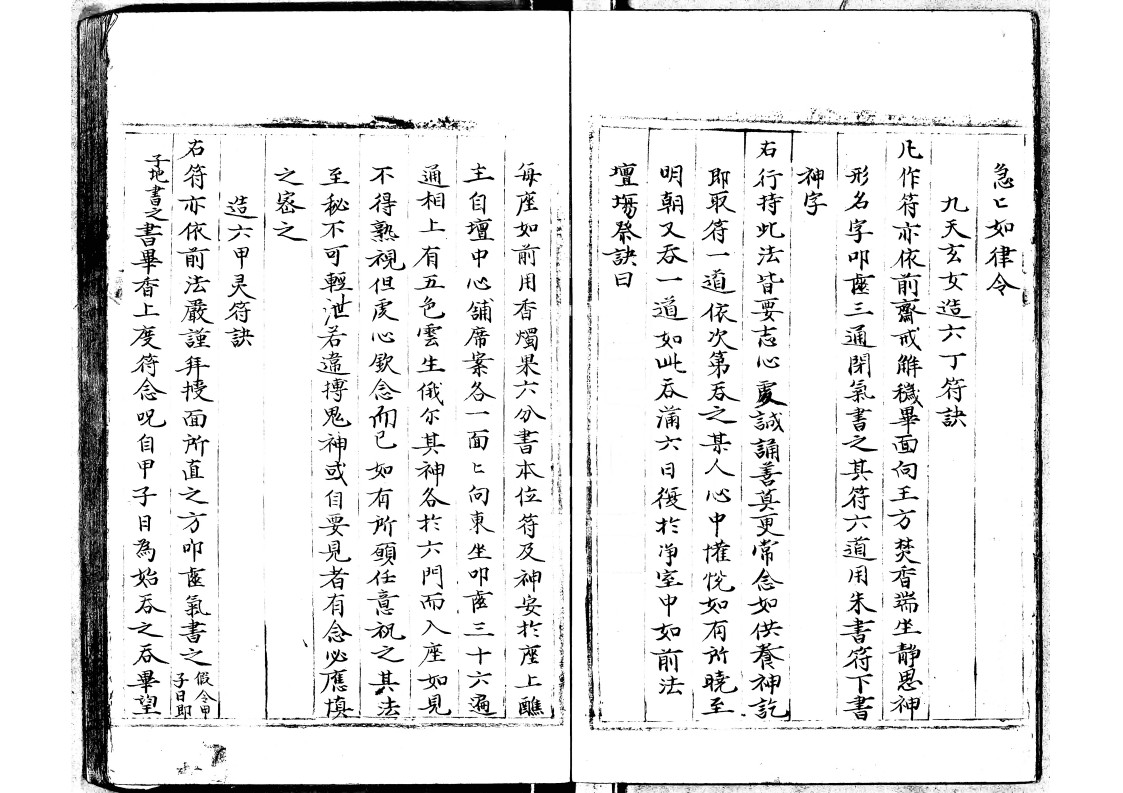 急〻如律令
九天玄女造六丁符訣
凡作符亦依前齋戒解穢畢面向王方焚香端坐静思神
形名字叩齒三通閉氣書之其符六道用朱書符下書
神字
右行持此法皆要志心虔誠誦善真更常念如供養神訖
即取符一道依次第吞之某人心中懽悅如有所曉至
明朝又吞一道如此吞滿六日復於净室中如前法
壇場祭訣曰
每座如前用香燭果六分書本位符及神安於座上醮
主自壇中心舖席案各一面〻向東坐叩齒三十六遍
通相上有五色雲生俄尔其神各於六門而入座如見
不得熟視但虔心欽念而已如有所願任意祝之其法
至秘不可輕泄若違摶鬼神或自要見者有念必應慎
之密之
造六甲灵符訣
右符亦依前法嚴謹拜授面所直之方叩齒氣書之假令甲子日即
子地書之書畢香上度符念呪自甲子日為始吞之吞畢望